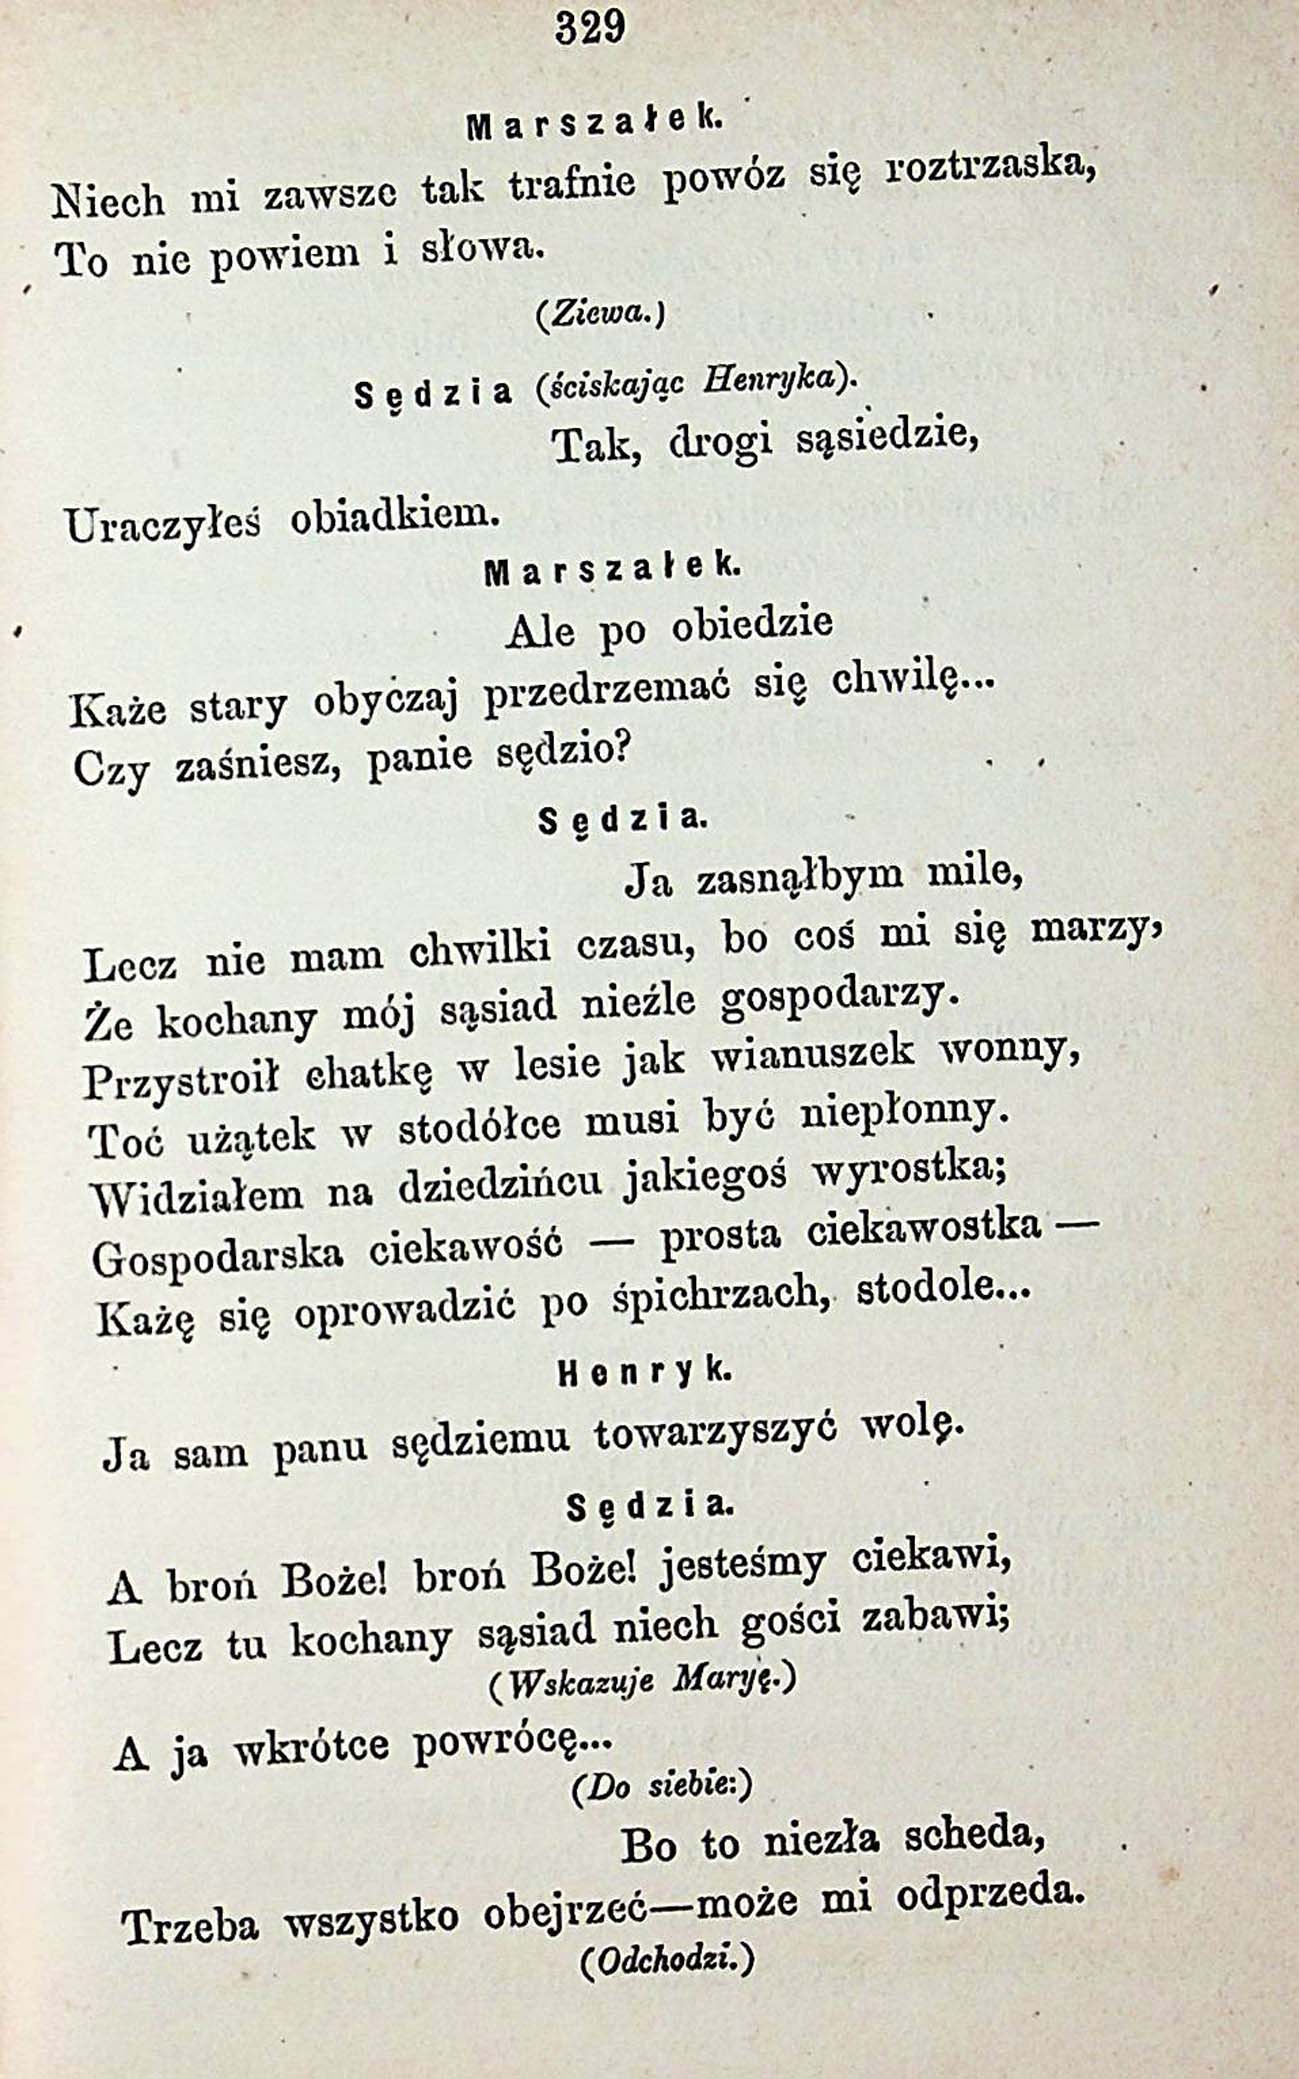 329
Marszałek.
Niech mi zawsze tak trafnie powóz się roztrzaska,
To nie powiem i słowa.
(Ziewa.)
Sędzia (ściskając Henryka).
Tak, drogi sąsiedzie,
Uraczyłeś obiadkiem.
Marszałek.
Ale po obiedzie
Każe stary obyczaj przedrzemać się chwilę...
Czy zaśniesz, panie sędzio?
Sędzia.
Ja zasnąłbym mile,
Lecz nie mam chwilki czasu, bo coś mi się marzy,
Że kochany mój sąsiad nieźle gospodarzy.
Przystroił chatkę w lesie jak wianuszek wonny,
Toć użątek w stodółce musi być niepłonny.
Widziałem na dziedzińcu jakiegoś wyrostka;
Gospodarska ciekawość — prosta ciekawostka —
Każę się oprowadzić po śpichrzach, stodole...
Henryk.
Ja sam panu sędziemu towarzyszyć wolę.
Sędzia.
A broń Boże! broń Boże! jesteśmy ciekawi,
Lecz tu kochany sąsiad niech gości zabawi;
(Wskazuje Maryę.)
A ja wkrótce powrócę...
(Do siebie:)
Bo to niezła scheda,
Trzeba wszystko obejrzeć—może mi odprzeda.
(Odchodzi.)